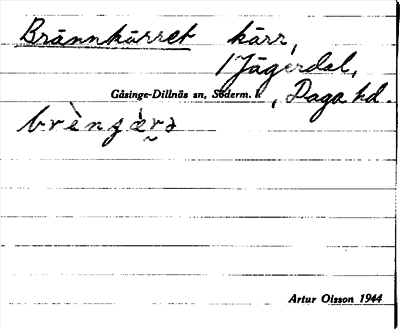 Brännkärret kärr,
/ Jägerdal,
Gåsinge-Dillnäs sn, Söderm. l. , Daga hd.
brènʒæ̀rə
Artur Olsson 1944